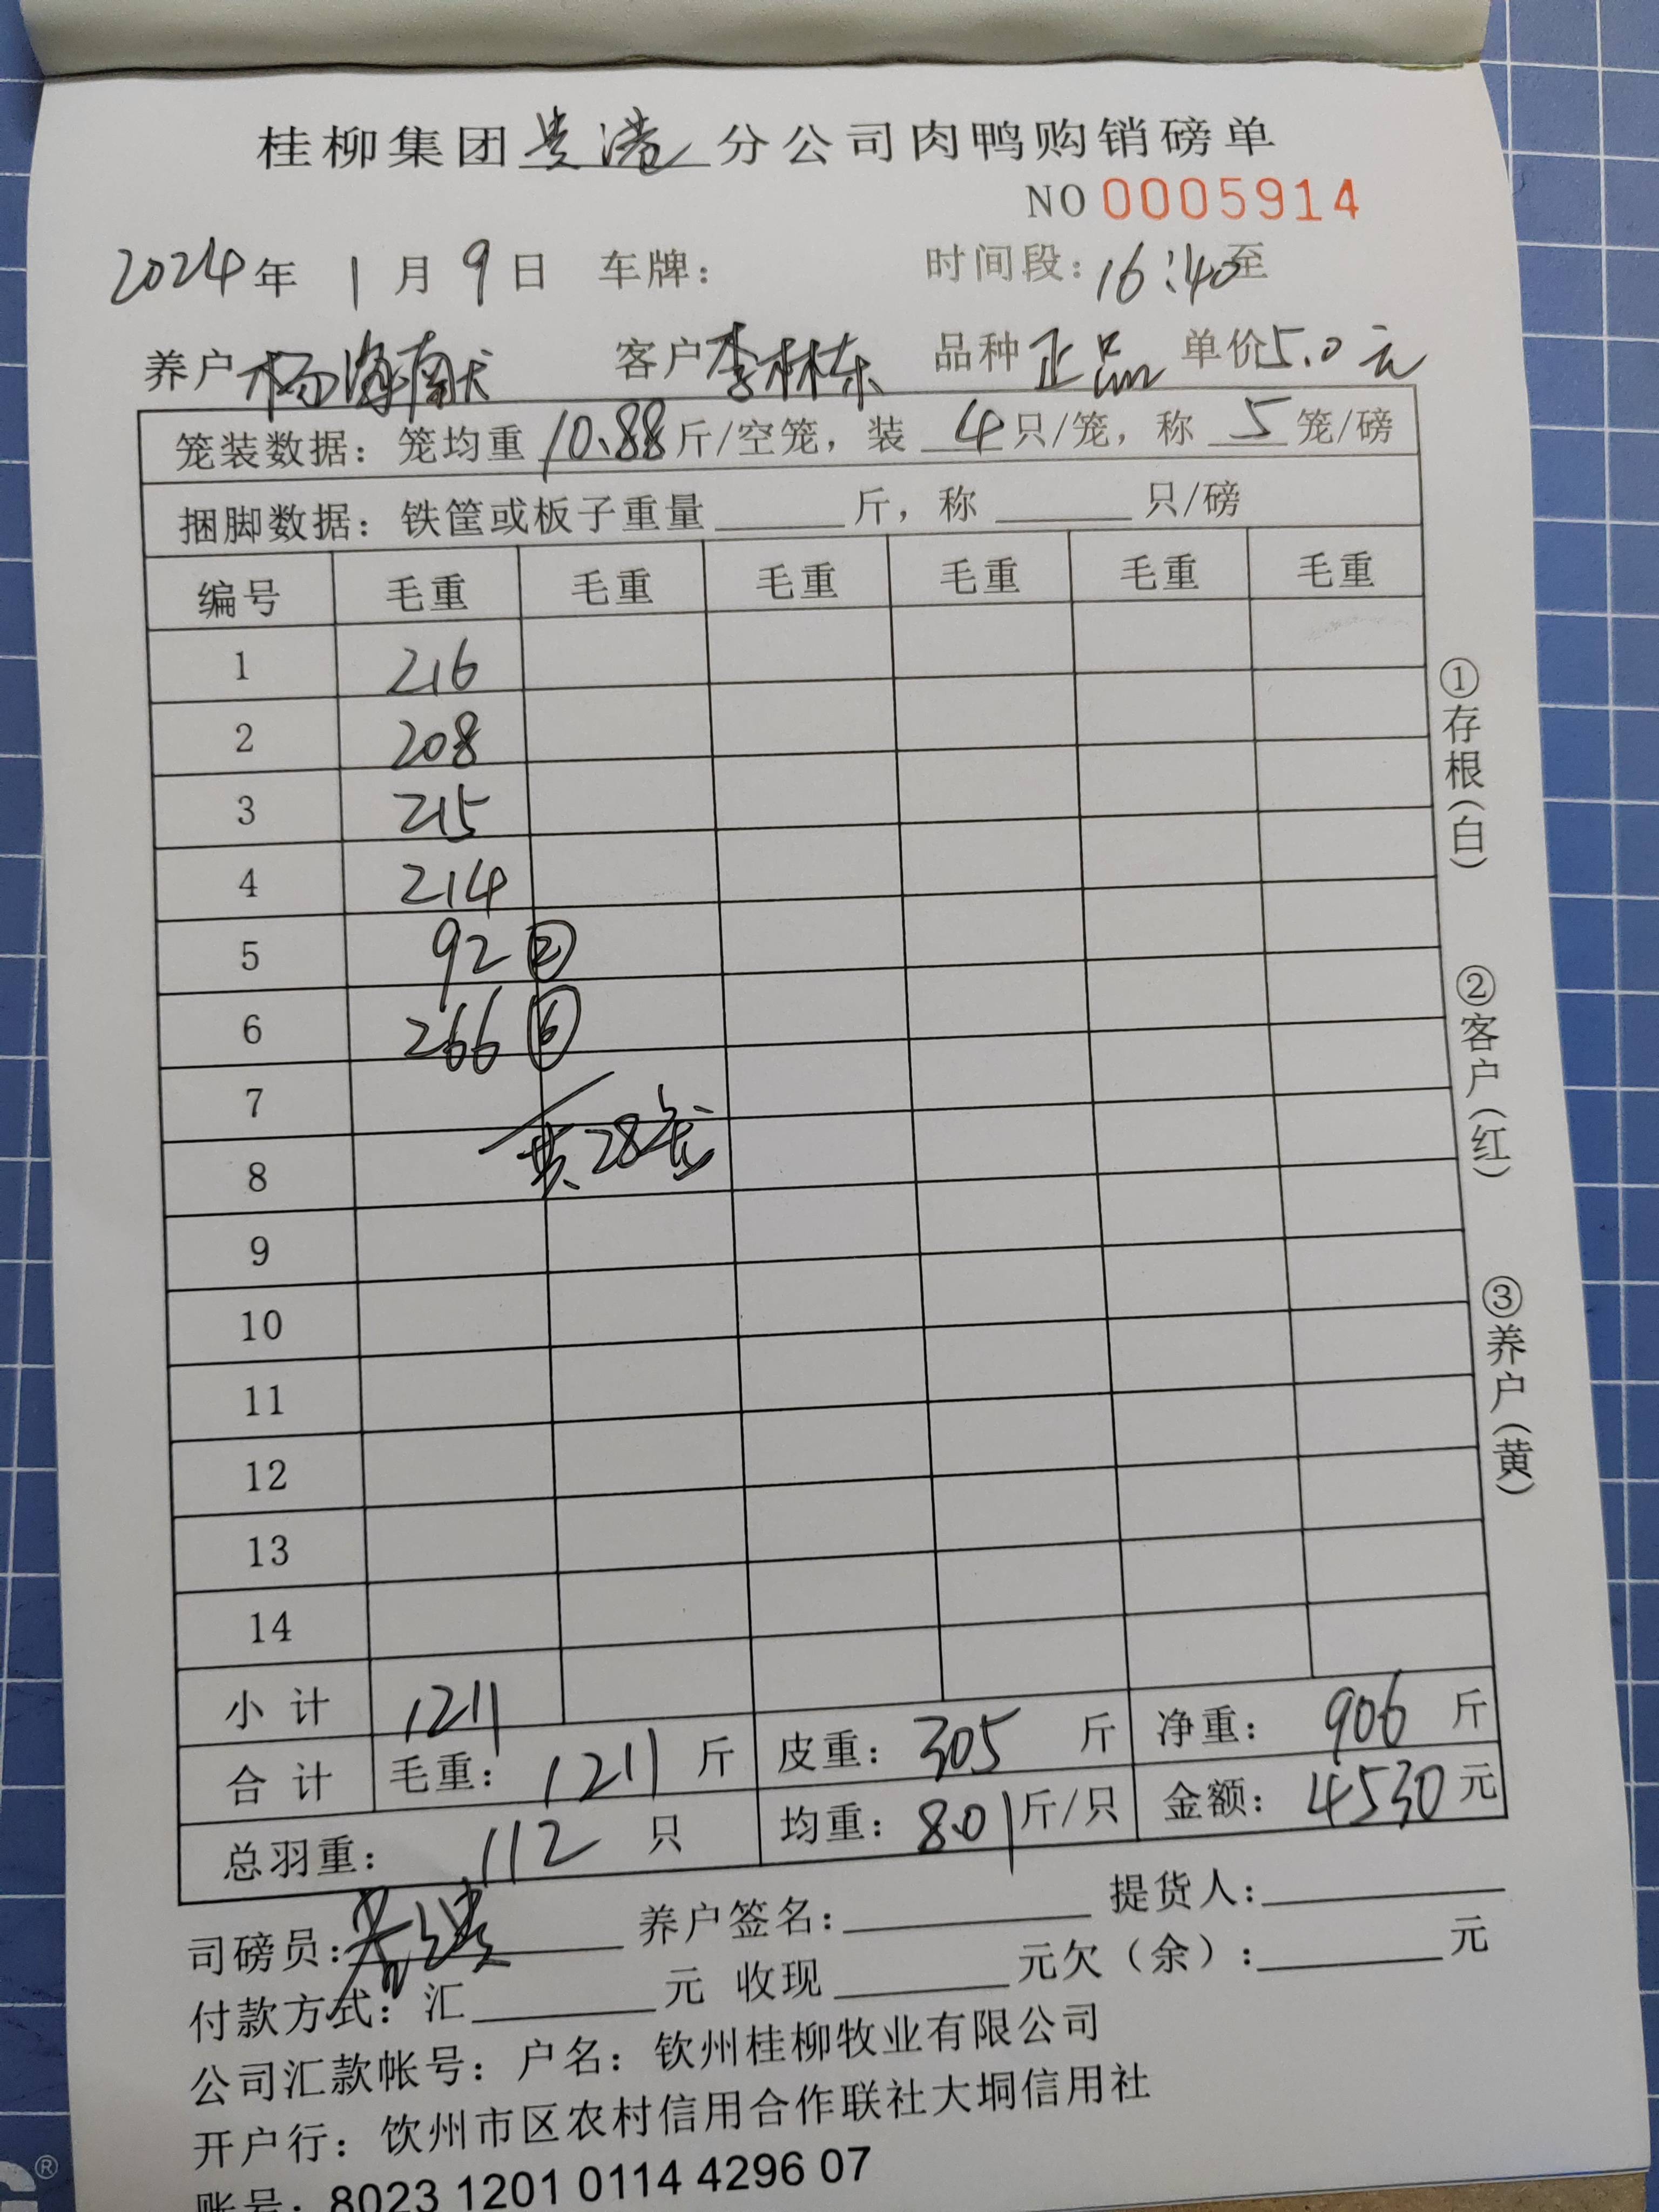 桂柳集团贵港分公司肉鸭购销磅单
NO 0005914
2024年 1月 9日 车牌： 时间段：16:40至
养户 杨海献 客户 李林东 品种 正品 单价5.0元
笼装数据：笼均重 10.88 斤/空笼，装 4 只/笼，称 5 笼/磅
捆脚数据：铁筐或板子重量______斤，称______只/磅
编号 毛重 毛重 毛重 毛重 毛重 毛重
1 216
2 208
3 215
4 214
5 92 ②
6 266 ⑥
7
8 共28笼
9
10
11
12
13
14
小计 1211
合计 毛重：1211 斤 皮重：305 斤 净重：906 斤
总羽重：112 只 均重：8.01斤/只 金额：4530元
①存根(白)
②客户(红)
③养户(黄)
司磅员： 养户签名：______ 提货人：______
付款方式：汇______元 收现______元欠（余）：______元
公司汇款帐号：户名：钦州桂柳牧业有限公司
开户行：饮州市区农村信用合作联社大垌信用社
账号：8023 1201 0114 4296 07